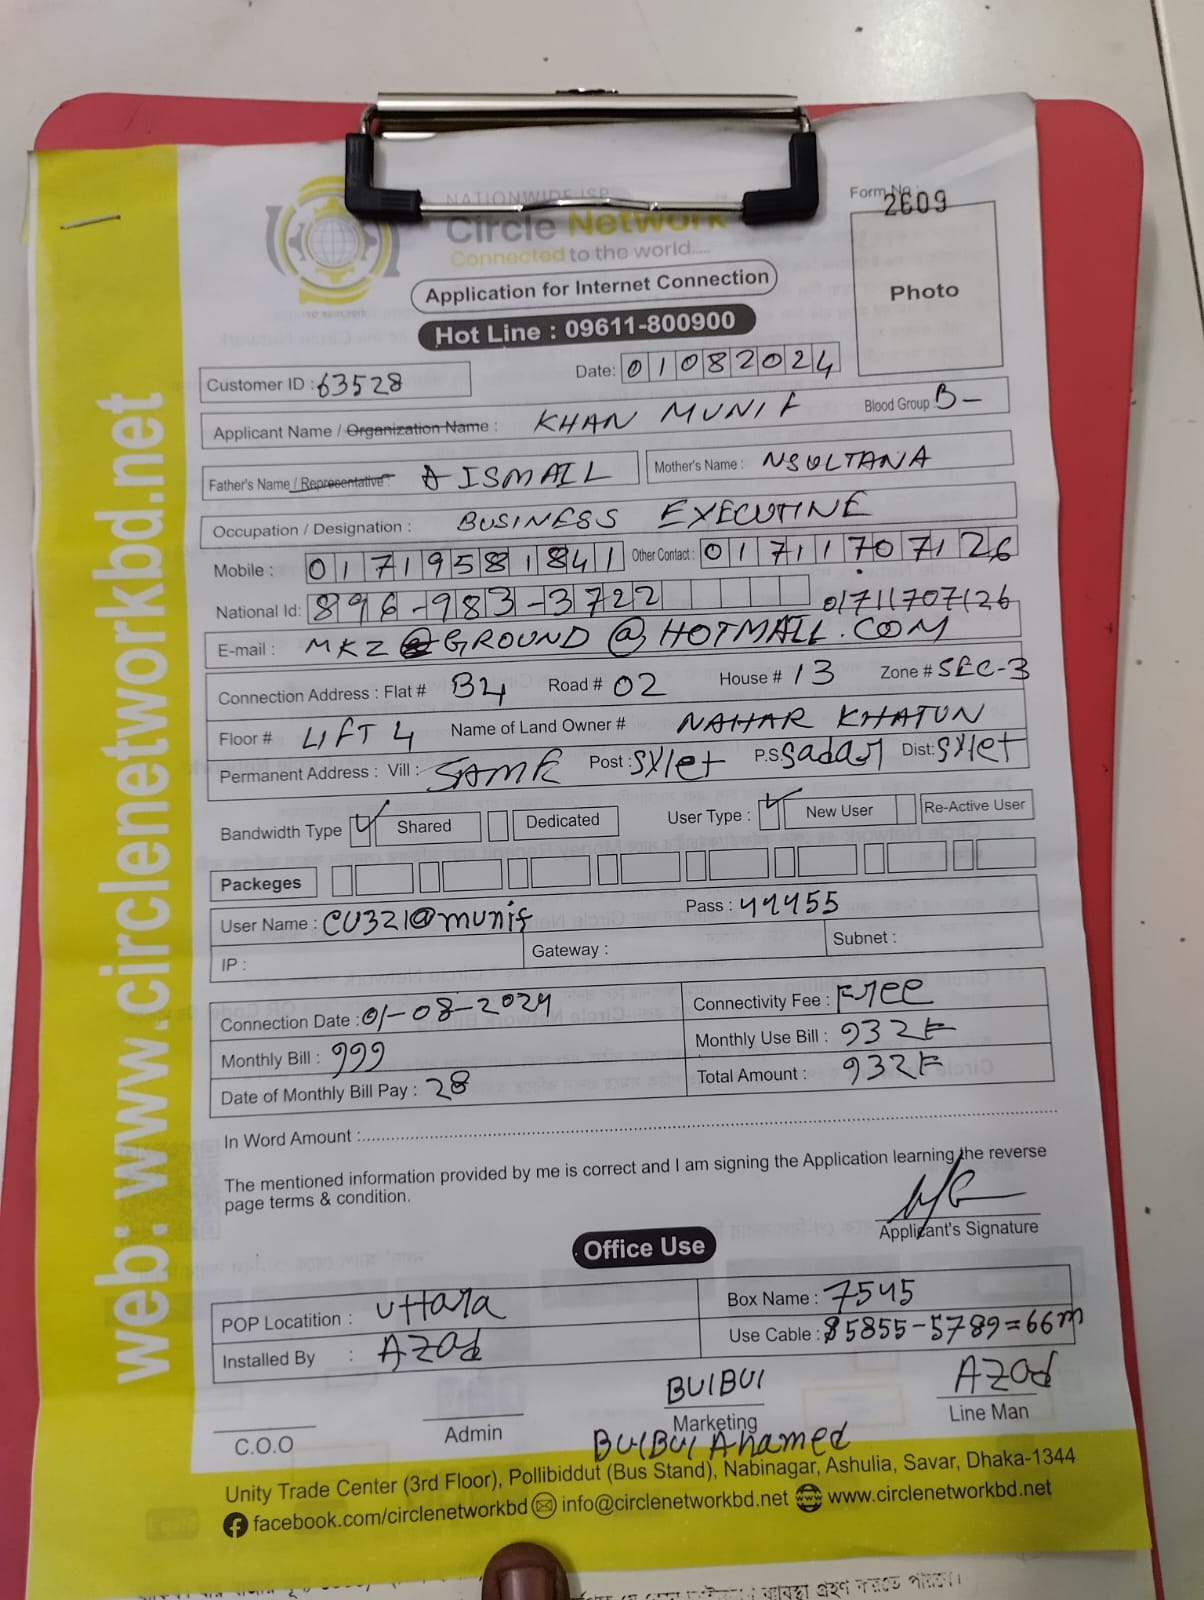 NATIONWIDE ISP
Circle Network
Connected to the world.....
Form No :
2609
Photo
Application for Internet Connection
Hot Line : 09611-800900
Customer ID : 63528
Date: 01082024
Applicant Name / Organization Name : KHAN MUNIF
Blood Group B-
Father's Name / Representative : A ISMAIL
Mother's Name : NSULTANA
Occupation / Designation : BUSINESS EXECUTINE
Mobile : 01719581841 Other Contact : 01711707126
National Id: 896-983-3722 01711707126
E-mail : MKZ GROUND@HOTMALL.COM
Connection Address : Flat # B4 Road # 02 House # 13 Zone # SEC-3
Floor # LIFT 4 Name of Land Owner # NAHAR KHATUN
Permanent Address : Vill : SAME Post : SYlet P.S. Sadar Dist: SYlet
Bandwidth Type Shared Dedicated User Type : New User Re-Active User
Packeges
User Name : CU321@munif Pass : 44455
IP : Gateway : Subnet :
Connection Date : 01-08-2024 Connectivity Fee : Free
Monthly Bill : 999 Monthly Use Bill : 932
Date of Monthly Bill Pay : 28 Total Amount : 932
In Word Amount :
The mentioned information provided by me is correct and I am signing the Application learning the reverse
page terms & condition.
Applicant's Signature
Office Use
POP Locatition : Uttara Box Name : 7545
Installed By : Azad Use Cable : 5855-5789=66m
BUlBUl Azad
C.O.O Admin Marketing Line Man
BUlBUl Ahamed
Unity Trade Center (3rd Floor), Pollibiddut (Bus Stand), Nabinagar, Ashulia, Savar, Dhaka-1344
facebook.com/circlenetworkbd info@circlenetworkbd.net www.circlenetworkbd.net
web: www.circlenetworkbd.net
ব্যবস্থা গ্রহণ করতে পারবে।